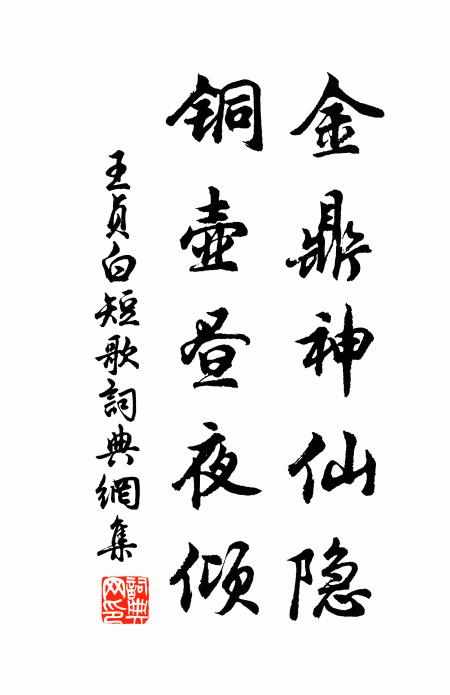 金鼎神仙隐
铜壶昼夜倾
王贞白短歌詞典網集